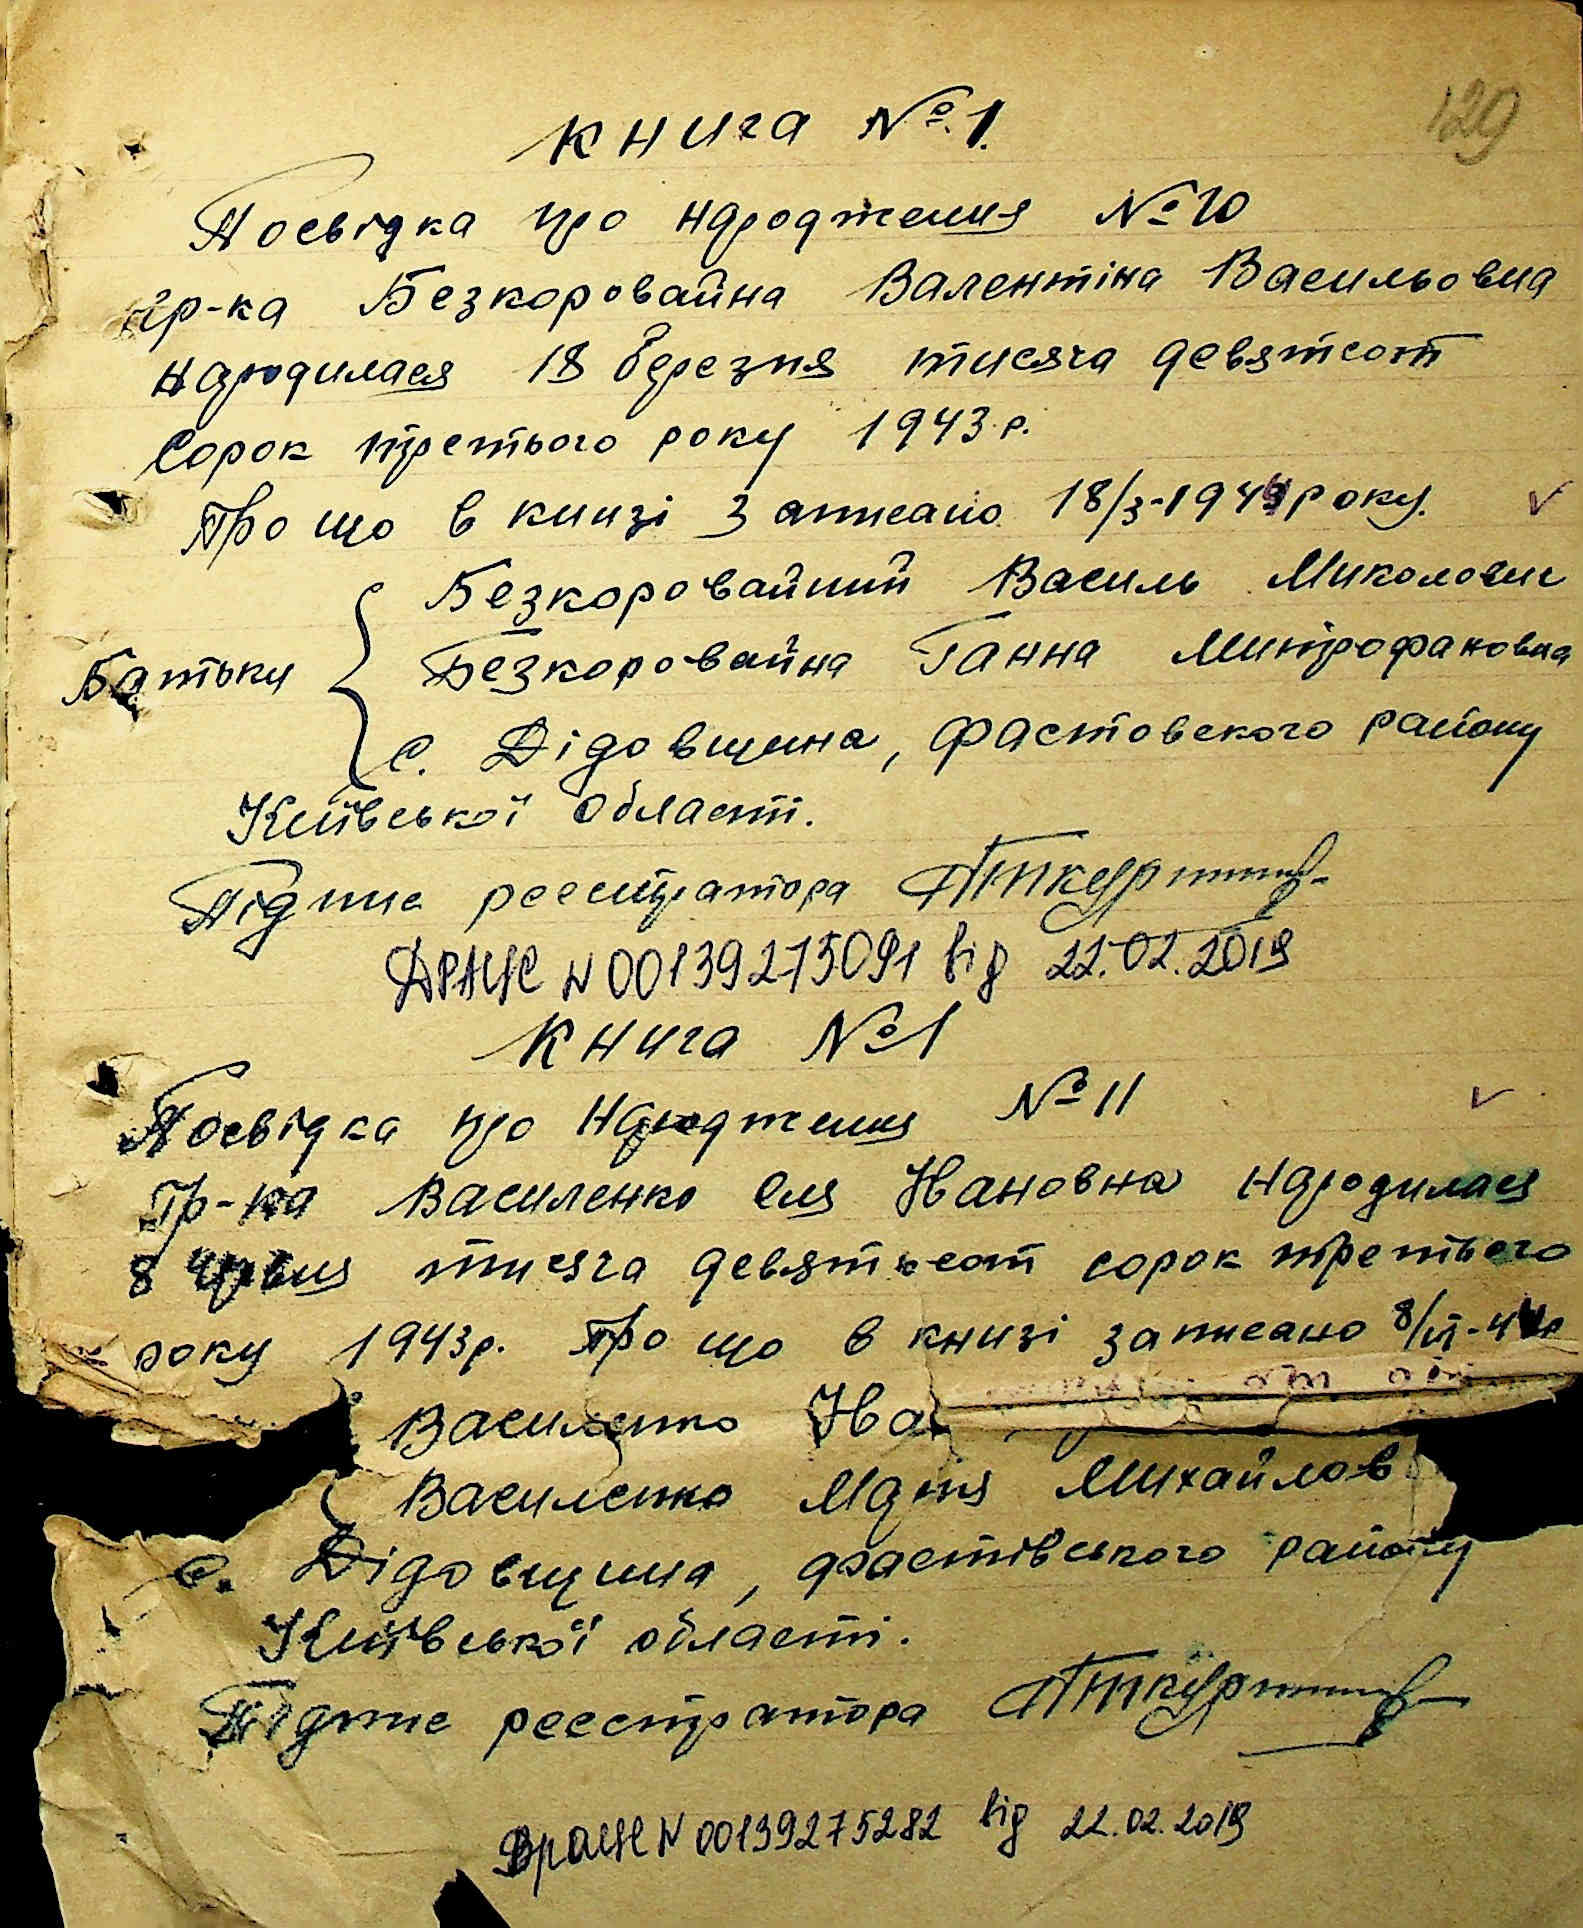 129
Книга №1.
Посвідка про народження №10
гр-ка Безкоровайна Валентіна Васильовна
народилася 18 березня тисяча девятсот
сорок третього року 1943 р.
Про що в книзі записано 18/3-1943 року.
Безкоровайний Василь Миколович
Батьки Безкоровайна Ганна Митрофановна
с. Дідовщина, Фастовского району
Київської області.
Підпис реєстратора
ДРАЦС N 00139275091 від 22.02.2019
Книга №1
Посвідка про народження №11
Гр-ка Василенко Оля Ивановна народилася
8 червня тисяча девятьсот сорок третього
року 1943р. Про що в книзі записано 8/VI-
Василенко Ива
Василенко Марія Михайлов
с. Дідовщина, Фастівського району
Київської області.
Підпис реєстратора
ДРАЦС N 00139275282 від 22.02.2019